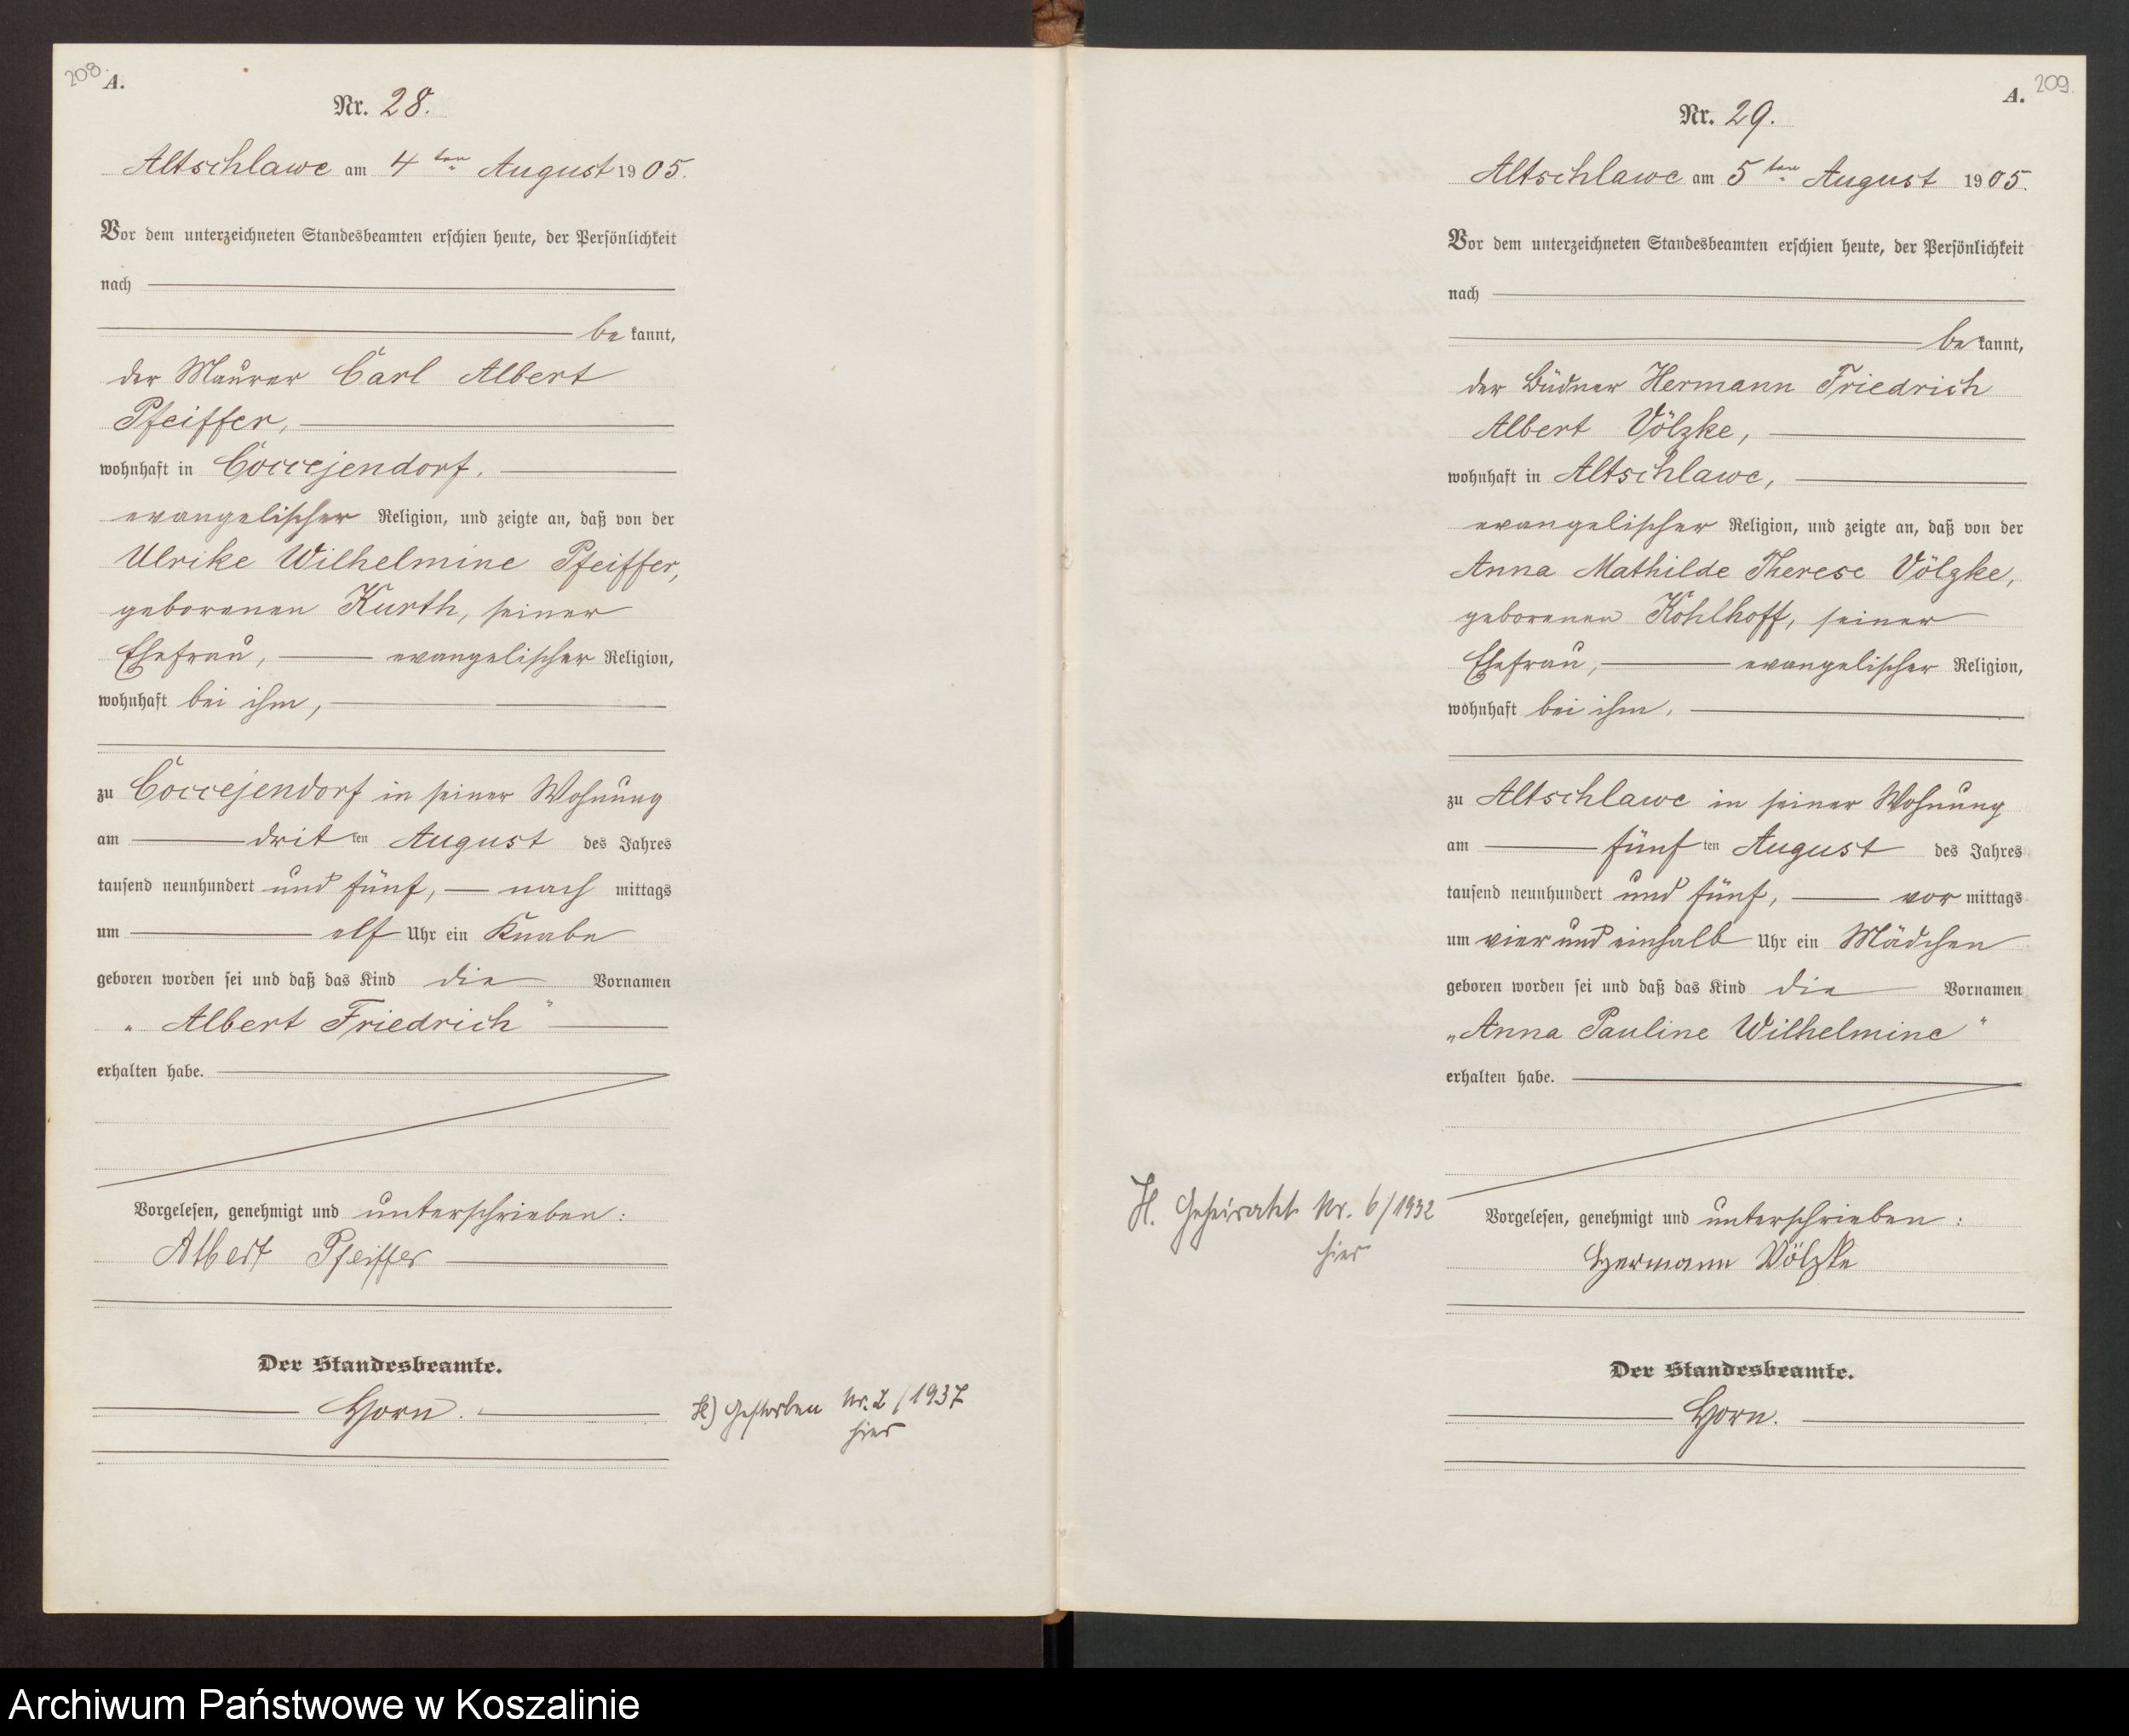 208.
A.
Nr. 28.
Altschlawe am 4ten August 1905.
Vor dem unterzeichneten Standesbeamten erschien heute, der Persönlichkeit
nach
be kannt,
der Maurer Carl Albert
Pfeiffer,
wohnhaft in Coccejendorf,
evangelischer Religion, und zeigte an, daß von der
Ulrike Wilhelmine Pfeiffer,
geborenen Kurth, seiner
Ehefrau, evangelischer Religion,
wohnhaft bei ihm,
zu Coccejendorf in seiner Wohnung
am dritten August des Jahres
tausend neunhundert und fünf, nach mittags
um elf Uhr ein Knabe
geboren worden sei und daß das Kind die Vornamen
„Albert Friedrich"
erhalten habe.
Vorgelesen, genehmigt und unterschrieben:
Albert Pfeiffer
Der Standesbeamte.
Horn.
H) Gestorben Nr. 2/1937
hier
A.
209.
Nr. 29.
Altschlawe am 5ten August 1905.
Vor dem unterzeichneten Standesbeamten erschien heute, der Persönlichkeit
nach
be kannt,
der Büdner Hermann Friedrich
Albert Völzke,
wohnhaft in Altschlawe,
evangelischer Religion, und zeigte an, daß von der
Anna Mathilde Therese Völzke,
geborenen Kohlhoff, seiner
Ehefrau, evangelischer Religion,
wohnhaft bei ihm,
zu Altschlawe in seiner Wohnung
am fünften August des Jahres
tausend neunhundert und fünf, vor mittags
um vier und einhalb Uhr ein Mädchen
geboren worden sei und daß das Kind die Vornamen
„Anna Pauline Wilhelmine"
erhalten habe.
H. Geheiratet Nr. 6/1932
hier
Vorgelesen, genehmigt und unterschrieben:
Hermann Völzke
Der Standesbeamte.
Horn.
Archiwum Państwowe w Koszalinie